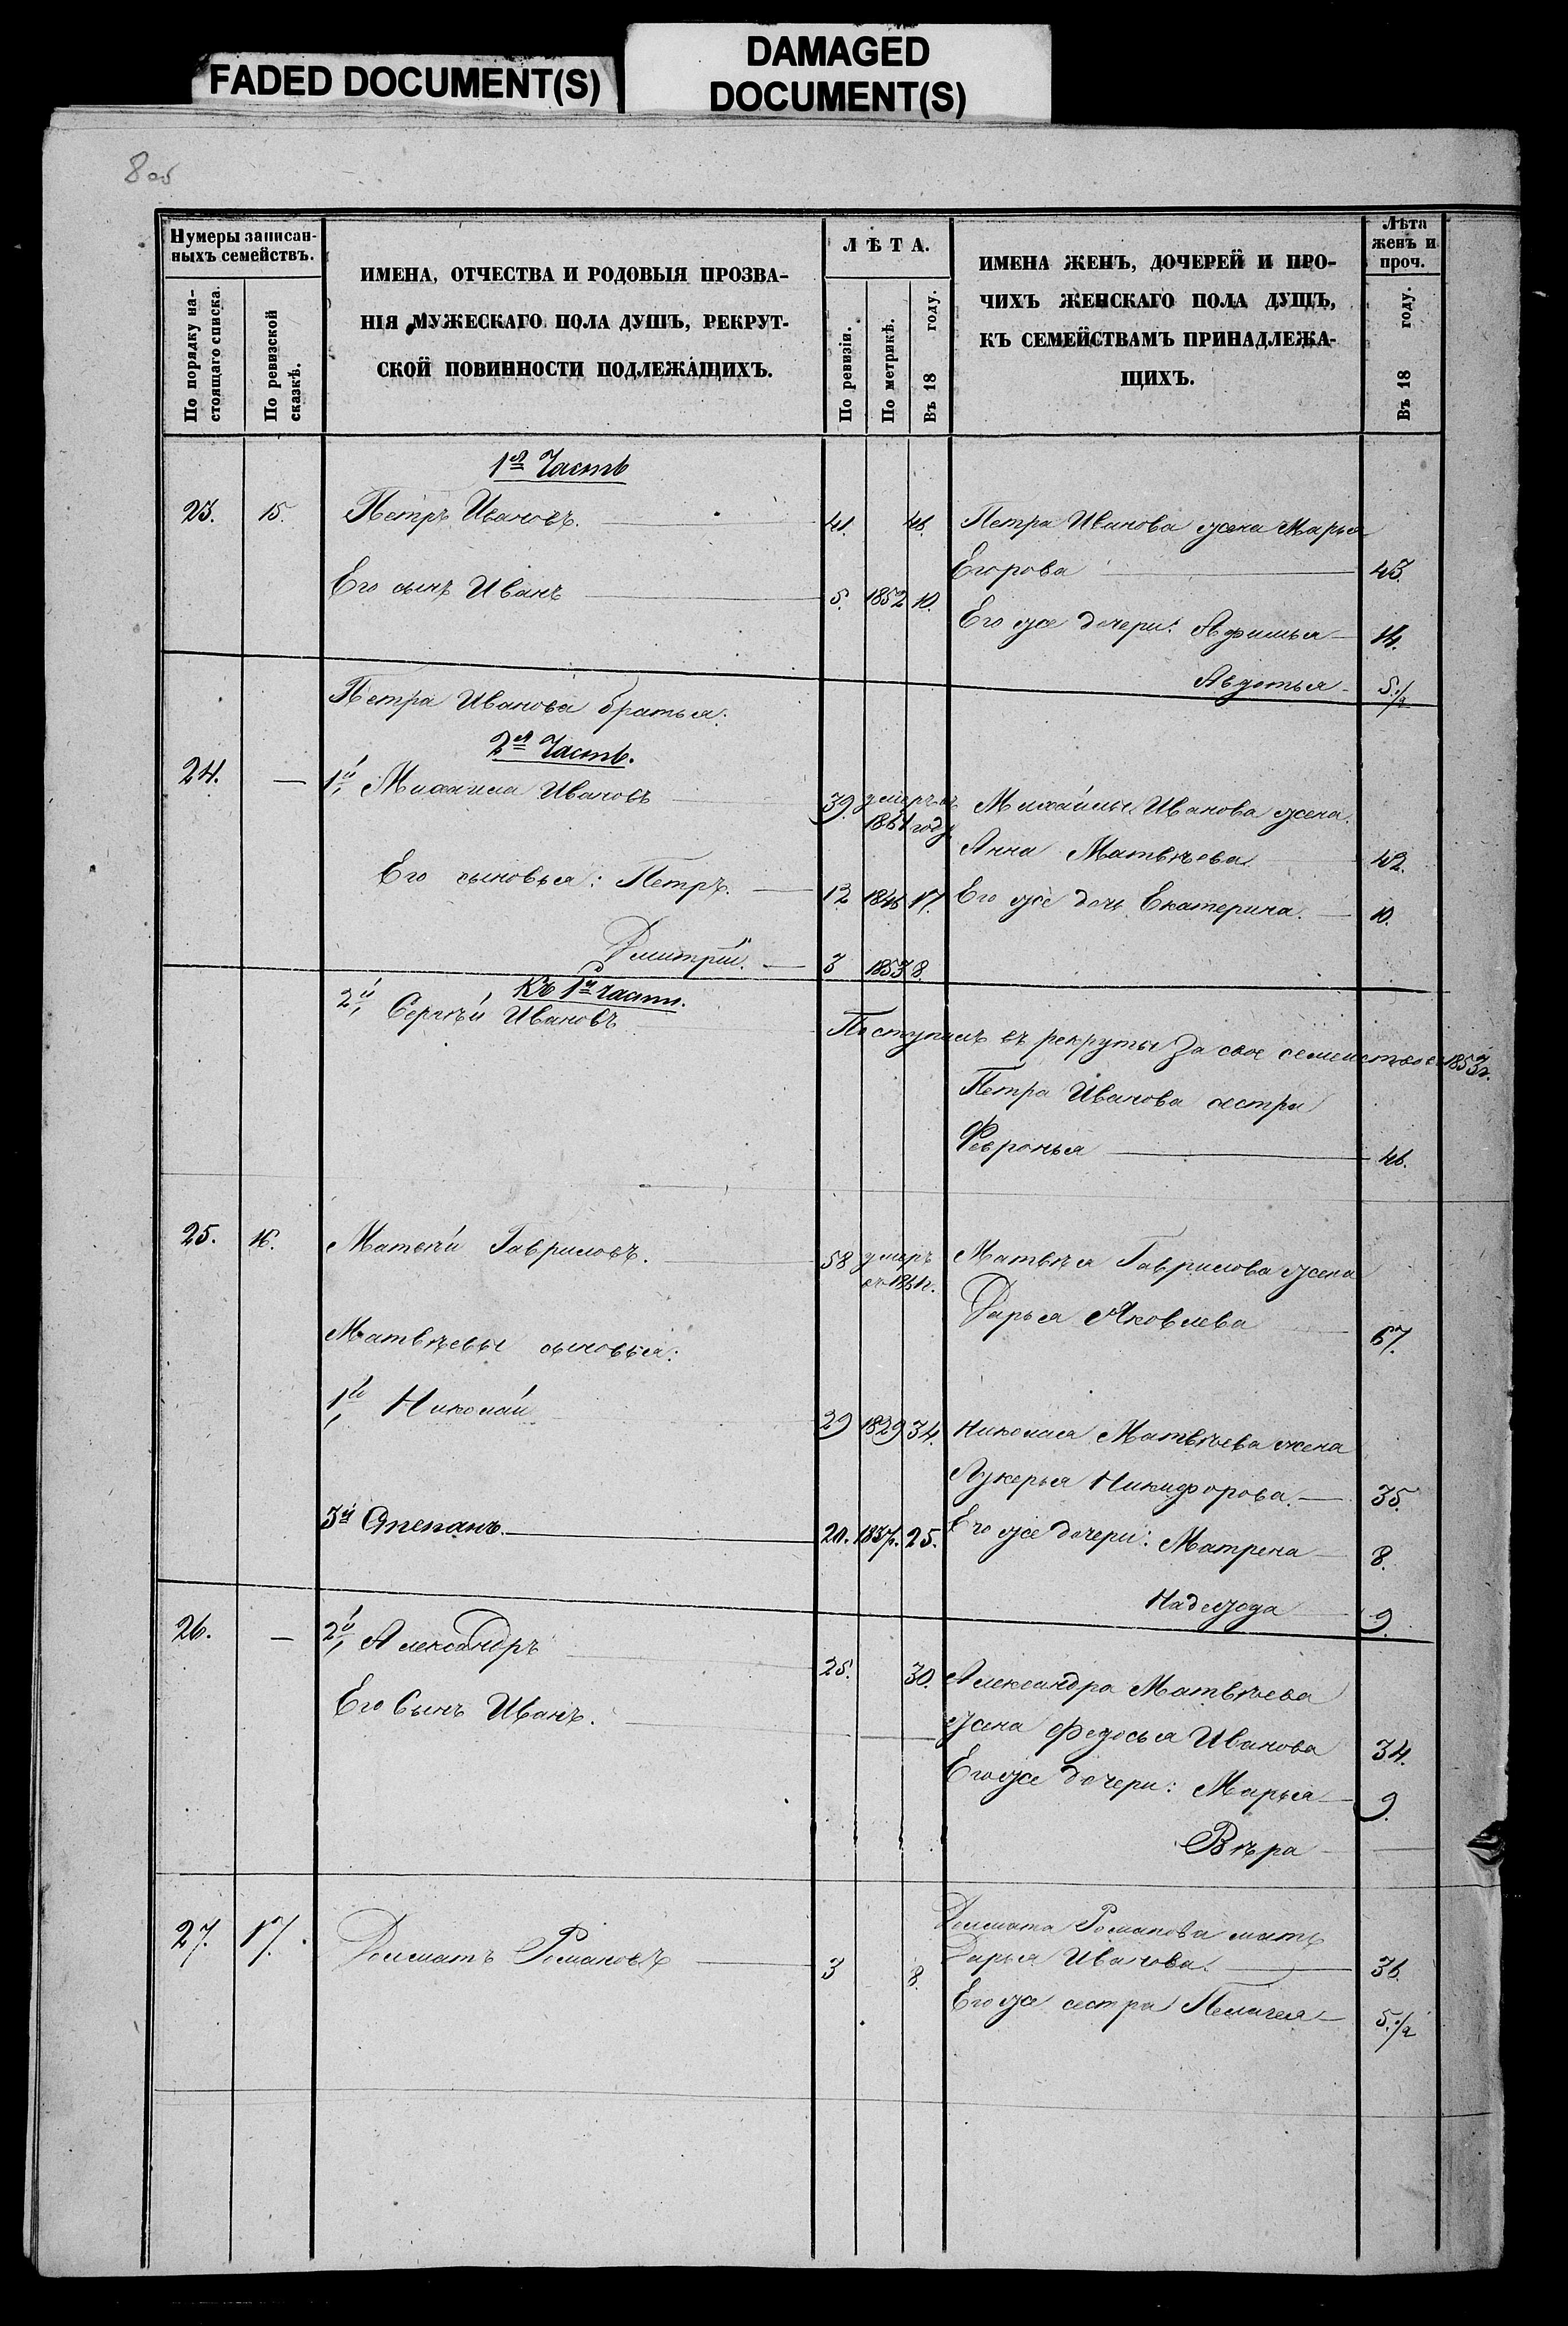 FADED DOCUMENT(S)
DAMAGED
DOCUMENT(S)
8 об
Нумеры записан-
ныхъ семействъ.
По порядку на-
стоящаго списка.
По ревизской
сказкѣ.
ИМЕНА, ОТЧЕСТВА И РОДОВЫЯ ПРОЗВА-
НІЯ МУЖЕСКАГО ПОЛА ДУШЪ, РЕКРУТ-
СКОЙ ПОВИННОСТИ ПОДЛЕЖАЩИХЪ.
ЛѢТА.
По ревизіи.
По метрикѣ.
Въ 18 году.
ИМЕНА ЖЕНЪ, ДОЧЕРЕЙ И ПРО-
ЧИХЪ ЖЕНСКАГО ПОЛА ДУШЪ,
КЪ СЕМЕЙСТВАМЪ ПРИНАДЛЕЖА-
ЩИХЪ.
Лѣта
женъ и
проч.
Въ 18 году.
1я Часть
23. 15. Петръ Ивановъ. 41. 46. Петра Иванова жена Марья
Егорова 43.
Его сынъ Иванъ 5. 1852 10.
Его же дочери: Афимья 14.
Авдотья 5 1/2
Петра Иванова братья:
2я Часть.
24. — 1й, Михаила Ивановъ 39. умеръ въ Михайлы Иванова жена
1861 году
Анна Матвѣева 42.
Его сыновья: Петръ. 12 1846 17. Его же дочь Екатерина. 10.
Дмитрій. 3 1853 8.
Къ 1й части.
2й, Сергѣй Ивановъ Поступилъ въ рекруты за свое семейство въ 1853г.
Петра Иванова сестра
Февронья 46.
25. 16. Матвѣй Гавриловъ. 58 умеръ Матвѣя Гаврилова жена
въ 1861г.
Дарья Яковлева 67.
Матвѣевы сыновья:
1й, Николай 29 1829 34. Николая Матвѣева жена
Лукерья Никифорова. 35.
3й Степанъ. 20. 1837. 25. Его же дочери: Матрена 8.
Надежда 9.
26. — 2й, Александръ 25. 30. Александра Матвѣева
Его Сынъ Иванъ. —
жена Федосья Иванова 34.
Его же дочери: Марья 9.
Вѣра —
27. 17. Долматъ Романовъ 3 8. Долмата Романова мать
Дарья Иванова. 36.
Его же сестра Пелагея 5 1/2